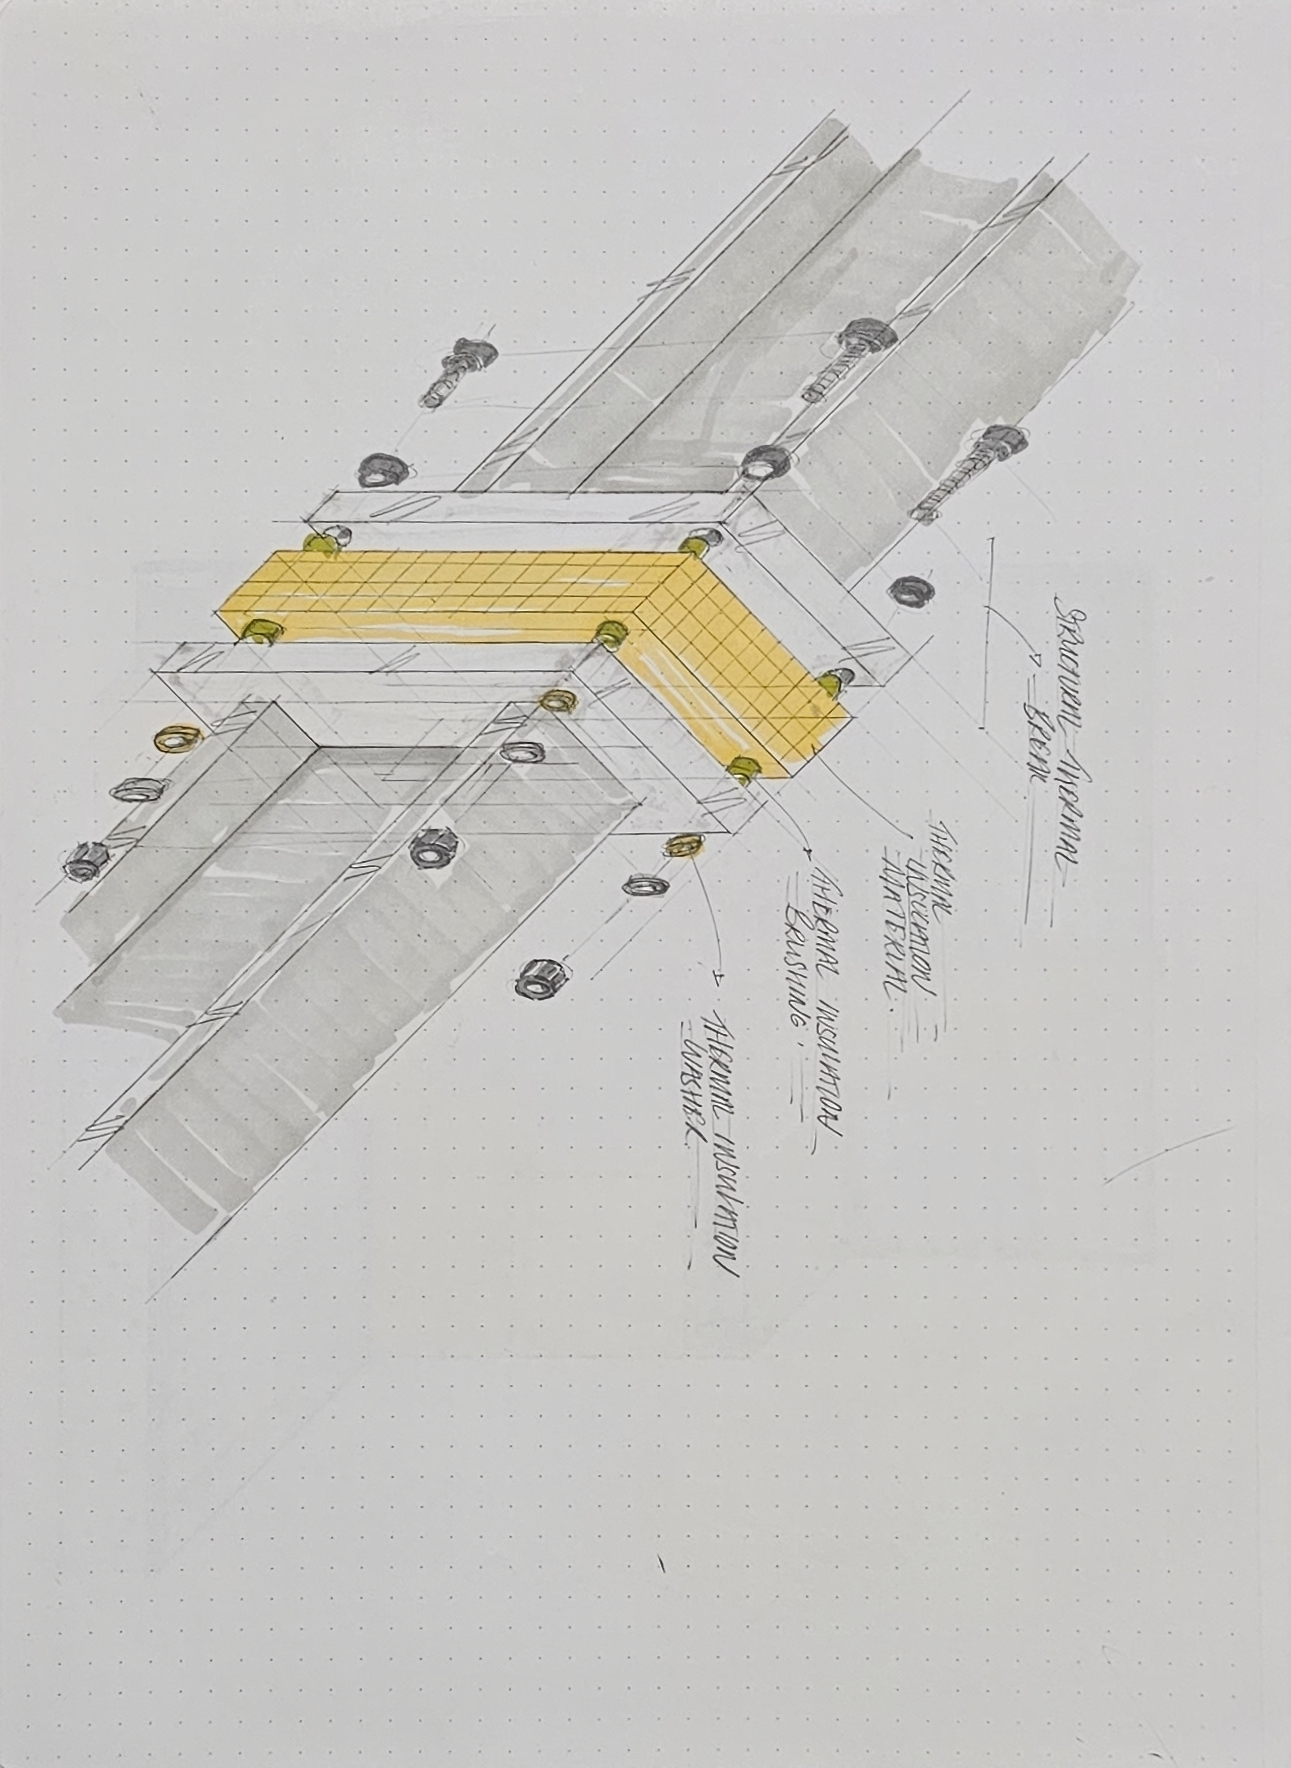 STRUCTURAL THERMAL
BREAK
THERMAL
INSULATION
MATERIAL.
THERMAL INSULATION
BRUSHING.
THERMAL INSULATION
WASHER.